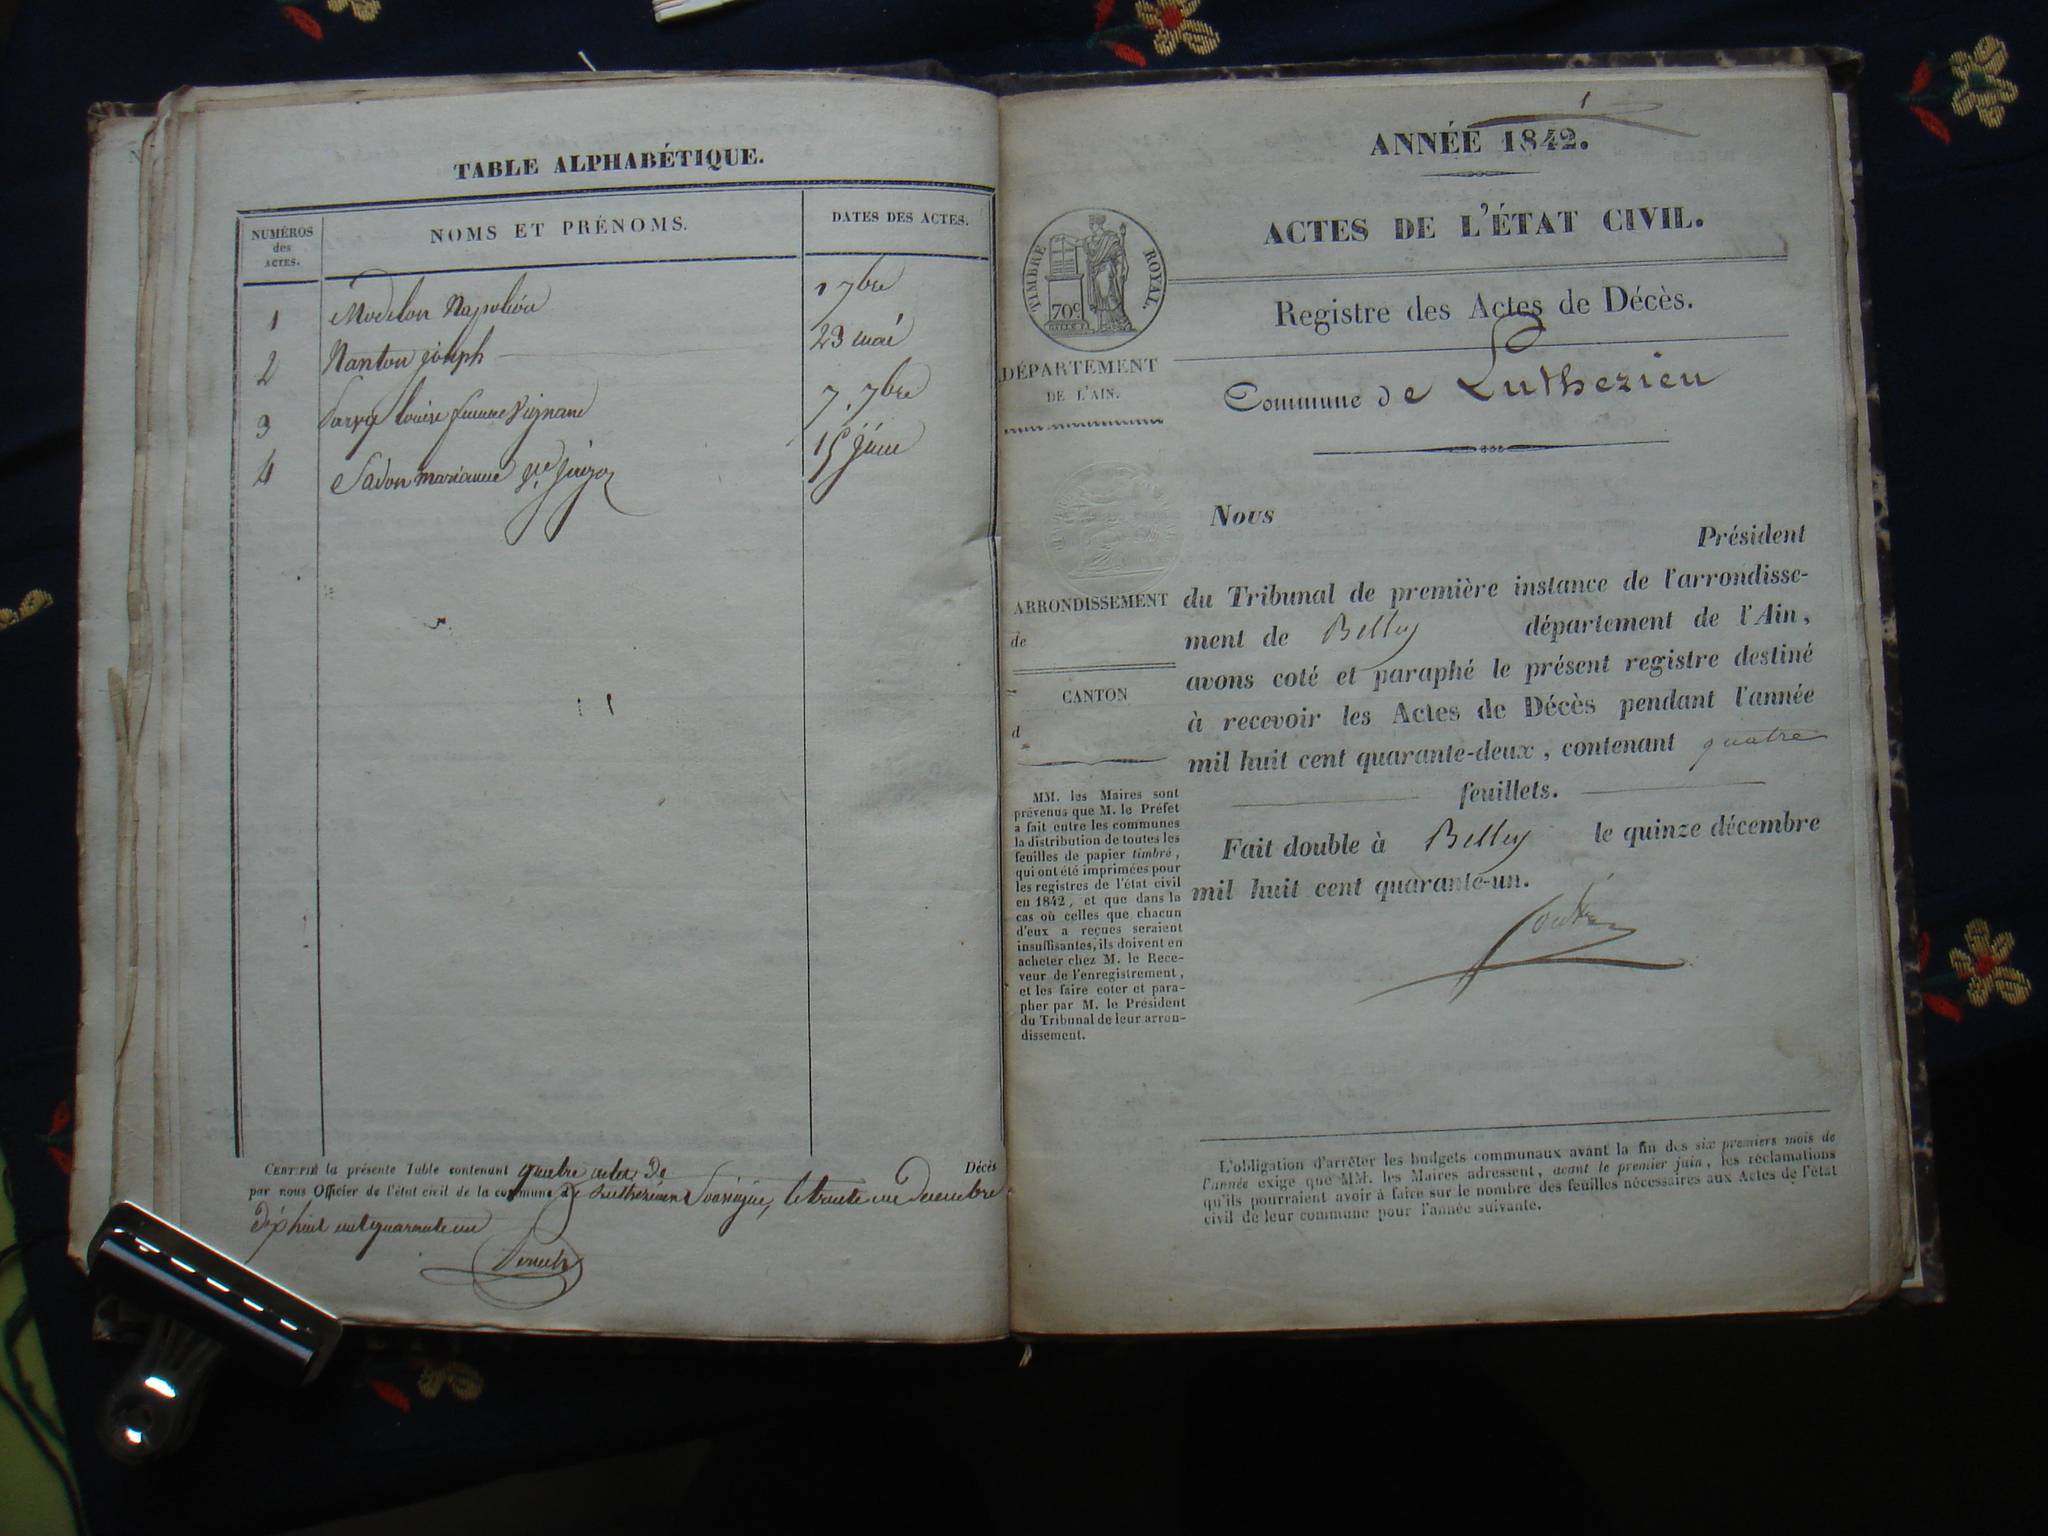 TABLE ALPHABÉTIQUE.
NUMÉROS
des
ACTES.
NOMS ET PRÉNOMS.
DATES DES ACTES.
1 Modelon Napoléon 1 7bre
2 Nanton joseph 23 mai
3 louise femme Vignand 7. 7bre
4 Savon marianne 15 juin
CERTIFIÉ la présente Table contenant quatre actes de Décès
par nous Officier de l'état civil de la commune de Luthezieu Soussigné, le trente un Decembre
dix huit cent quarante un
1
ANNÉE 1842.
ACTES DE L'ÉTAT CIVIL.
TIMBRE ROYAL.
70c
Registre des Actes de Décès.
DÉPARTEMENT
DE L'AIN.
Commune de Luthezieu
Nous
Président
du Tribunal de première instance de l'arrondisse-
ment de Belley département de l'Ain,
avons coté et paraphé le présent registre destiné
à recevoir les Actes de Décès pendant l'année
mil huit cent quarante-deux, contenant quatre
feuillets.
Fait double à Belley le quinze décembre
mil huit cent quarante-un.
ARRONDISSEMENT
de
CANTON
d
MM. les Maires sont
prévenus que M. le Préfet
a fait entre les communes
la distribution de toutes les
feuilles de papier timbré,
qui ont été imprimées pour
les registres de l'état civil
en 1842, et que dans le
cas où celles que chacun
d'eux a reçues seraient
insuffisantes, ils doivent en
acheter chez M. le Rece-
veur de l'enregistrement,
et les faire coter et para-
pher par M. le Président
du Tribunal de leur arron-
dissement.
L'obligation d'arrêter les budgets communaux avant la fin des six premiers mois de
l'année exige que MM. les Maires adressent, avant le premier juin, les réclamations
qu'ils pourraient avoir à faire sur le nombre des feuilles nécessaires aux Actes de l'état
civil de leur commune pour l'année suivante.